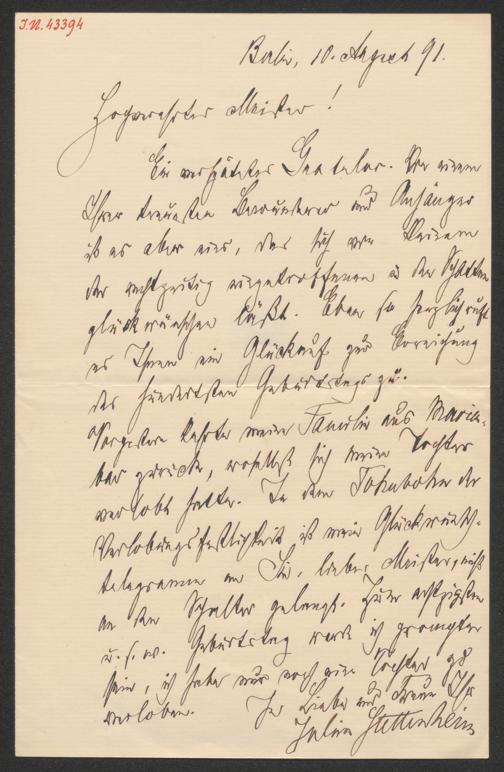 I.N. 43394
Berlin, 10. August 91.
Hochverehrter Meister!
Ein verspäteter Gratulant. Von einem
Ihrer treuesten Bewunderer und Anhänger
ist es aber eins, das sich von keinem
der rechtzeitig eingetroffenen in den Schatten
glückwünschen läßt. Eben so herzlich ruft
es Ihnen ein Glückauf zur Erreichung
des hundertsten Geburtstags zu.
Vorgestern kehrte meine Familie aus Marien-
bad zurück, woselbst sich meine Tochter
verlobt hatte. In dem der
Verlobungsfestlichkeit ist mein Glückwunsch-
telegramm an Sie, lieber Meister, nicht
an den Schalter gelangt. Zum achtzigsten
u. s. w. Geburtstag werd ich prompter
sein, ich habe nur noch eine Tochter zu
verloben. In Liebe und Treue Ihr
Julius Stettenheim